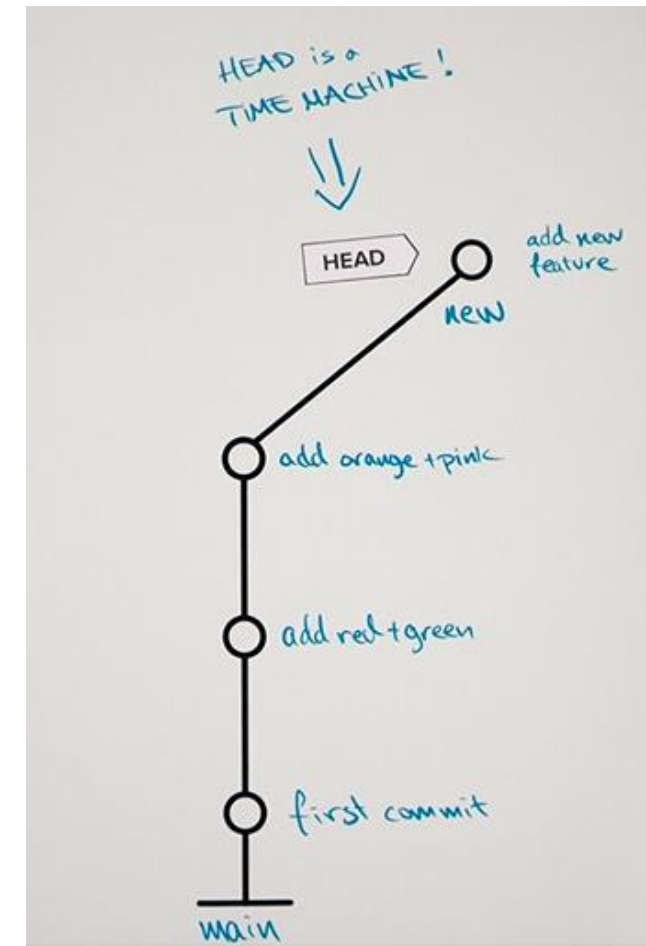 HEAD is a
TIME MACHINE !
HEAD
add new
feature
new
add orange + pink
add red + green
first commit
main